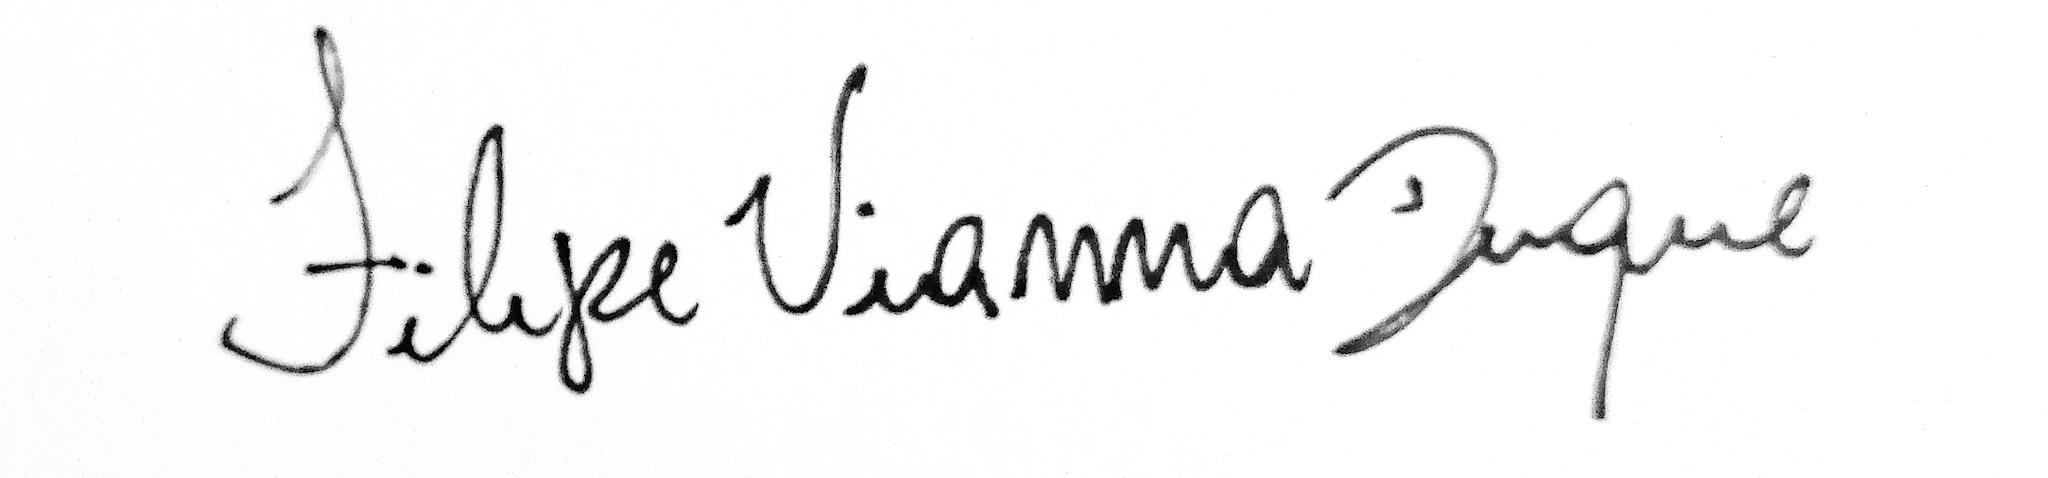 Filipe Vianna Duque